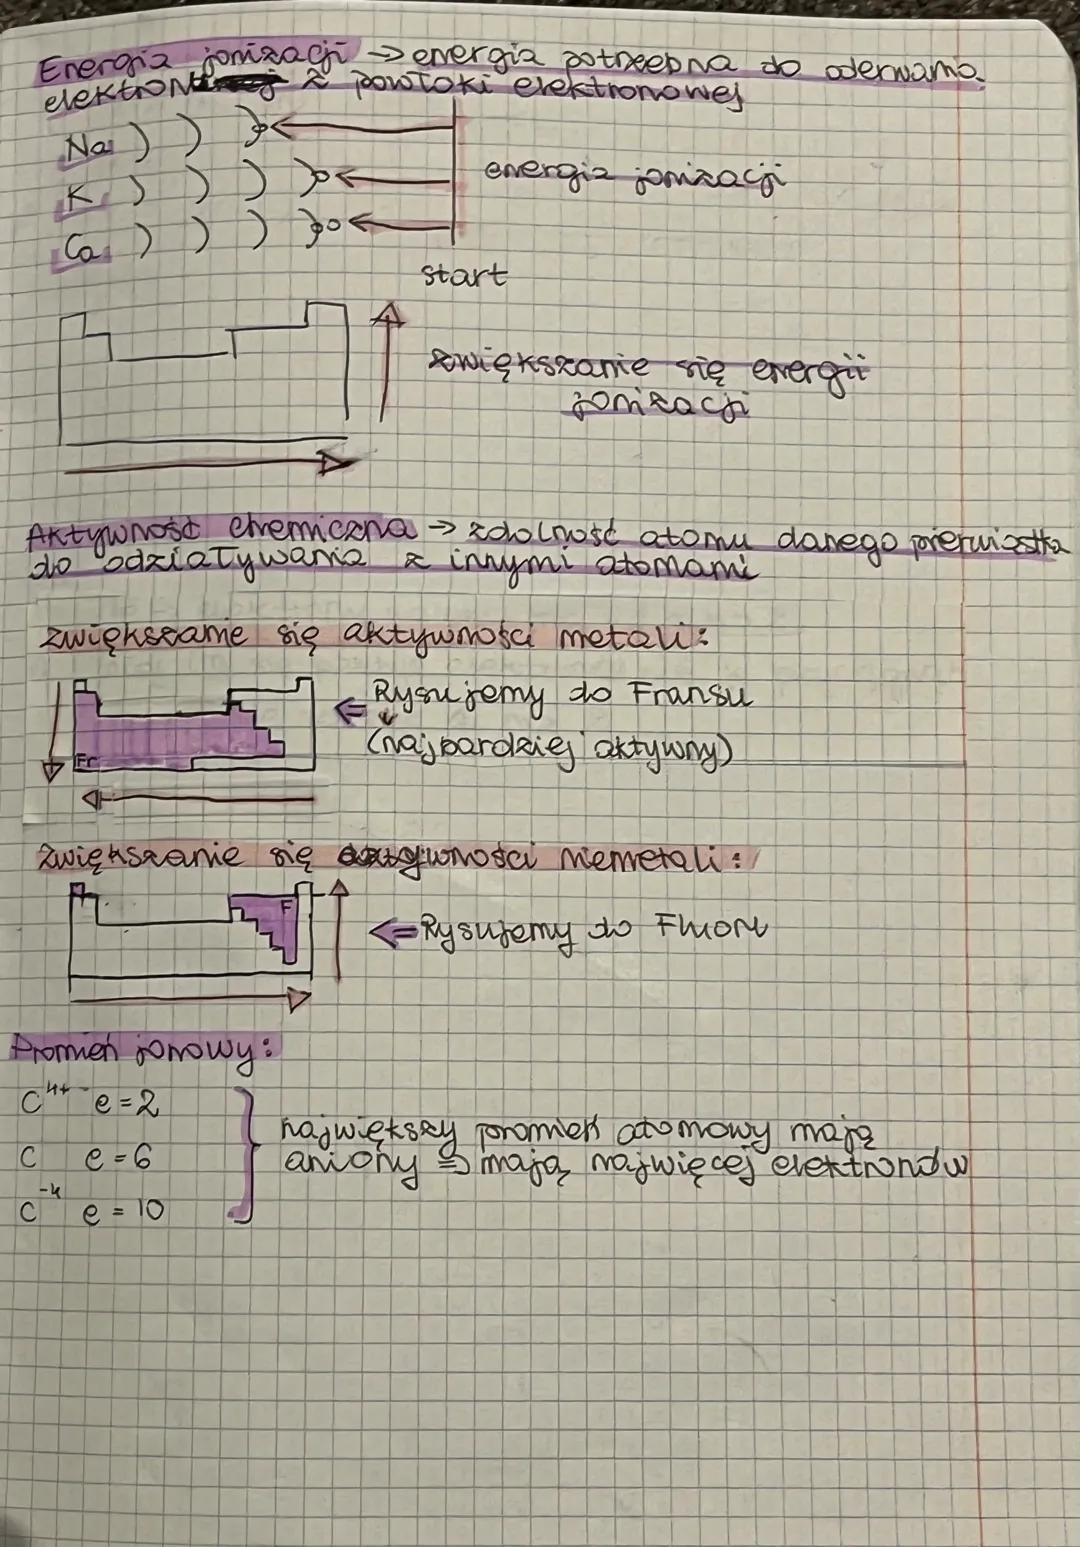 Energia jonizacji → energia potrzebna do oderwania
elektronu z powłoki elektronowej
Na ) ) )
K ) ) ) )
energia jonizacji
Ca ) ) ) )
start
zwiększanie się energii
jonizacji
Aktywność chemiczna → zdolność atomu danego pierwiastka
do odziaływania z innymi atomami
zwiększanie się aktywności metali:
← Rysujemy do Fransu
(najbardziej aktywny)
Fr
zwiększanie się aktywności niemetali:
F
← Rysujemy do Fluoru
Promień jonowy:
C⁴⁺ e = 2
największy promień atomowy mają
C e = 6
aniony ⇒ mają najwięcej elektronów
C⁻⁴ e = 10